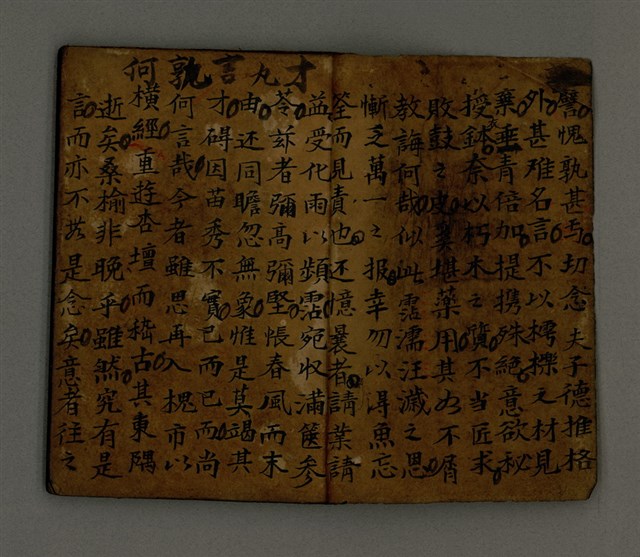 才九言孰何
譬愧孰甚焉切念夫子德推格
外甚难名言不以樗櫟之材見
棄垂青倍加提携殊絕意欲秘
授鉢奈以朽木之質不当匠求
敗鼓之皮奚堪藥用其如不屑
教誨何哉似此霑濡汪濊之恩
慚乏萬一之报幸勿以得魚忘
筌而見責也还憶曩者請業請
益受化雨以頻霑宛収滿篋参
苓兹者彌高彌堅悵春風而末
由还同瞻忽無象惟是莫竭其
才碍因苗秀不實已而已而尚
何言哉今者雖思再入槐市以
橫經重遊杏壇而嵇古其東隅
逝矣桑榆非晚乎雖然究有是
言而亦不敢是念矣意者往之